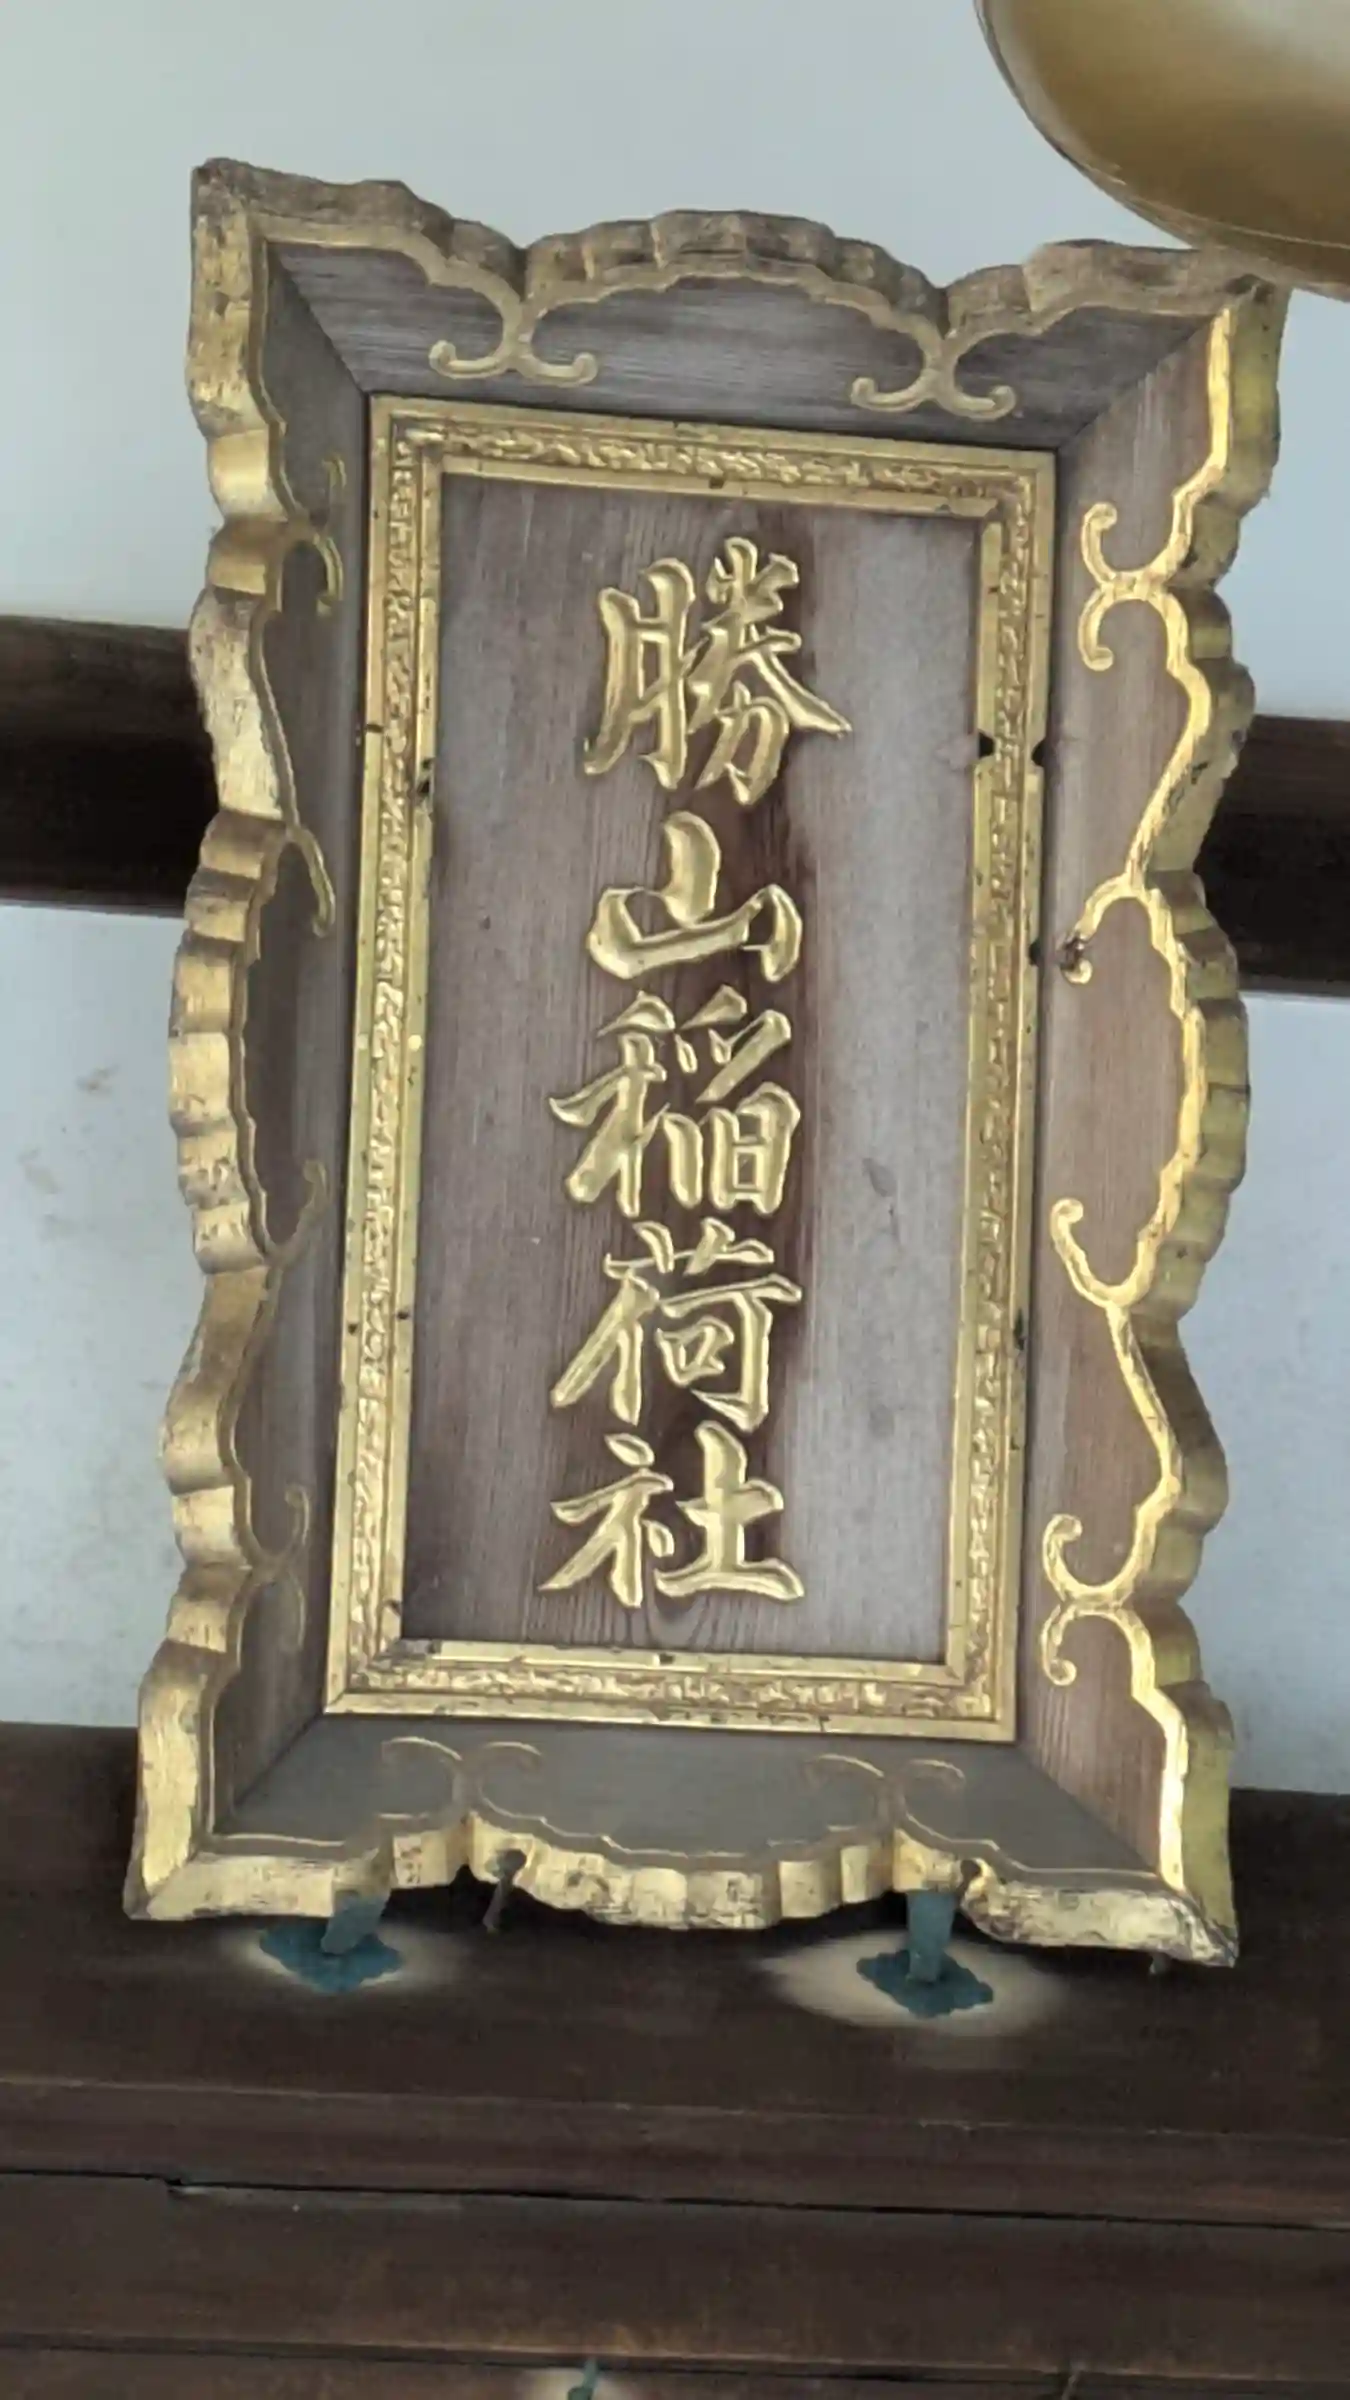 勝山稲荷社